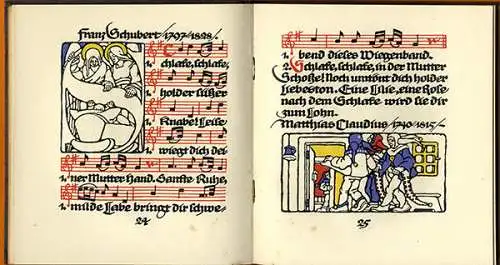 Franz Schubert /1797/1828/.
1. Schlafe, schlafe,
1. holder süßer
1. Knabe! Leise
1. wiegt dich dei-
1. ner Mutter Hand. Sanfte Ruhe,
1. milde Labe bringt dir schwe-
24
1. bend dieses Wiegenband.
2. Schlafe, schlafe, in der Mutter
Schoße! Noch umtönt dich holder
Liebeston. Eine Lilie, eine Rose
nach dem Schlafe wird sie dir
zum Lohn.
Matthias Claudius /1740/1815/.
25